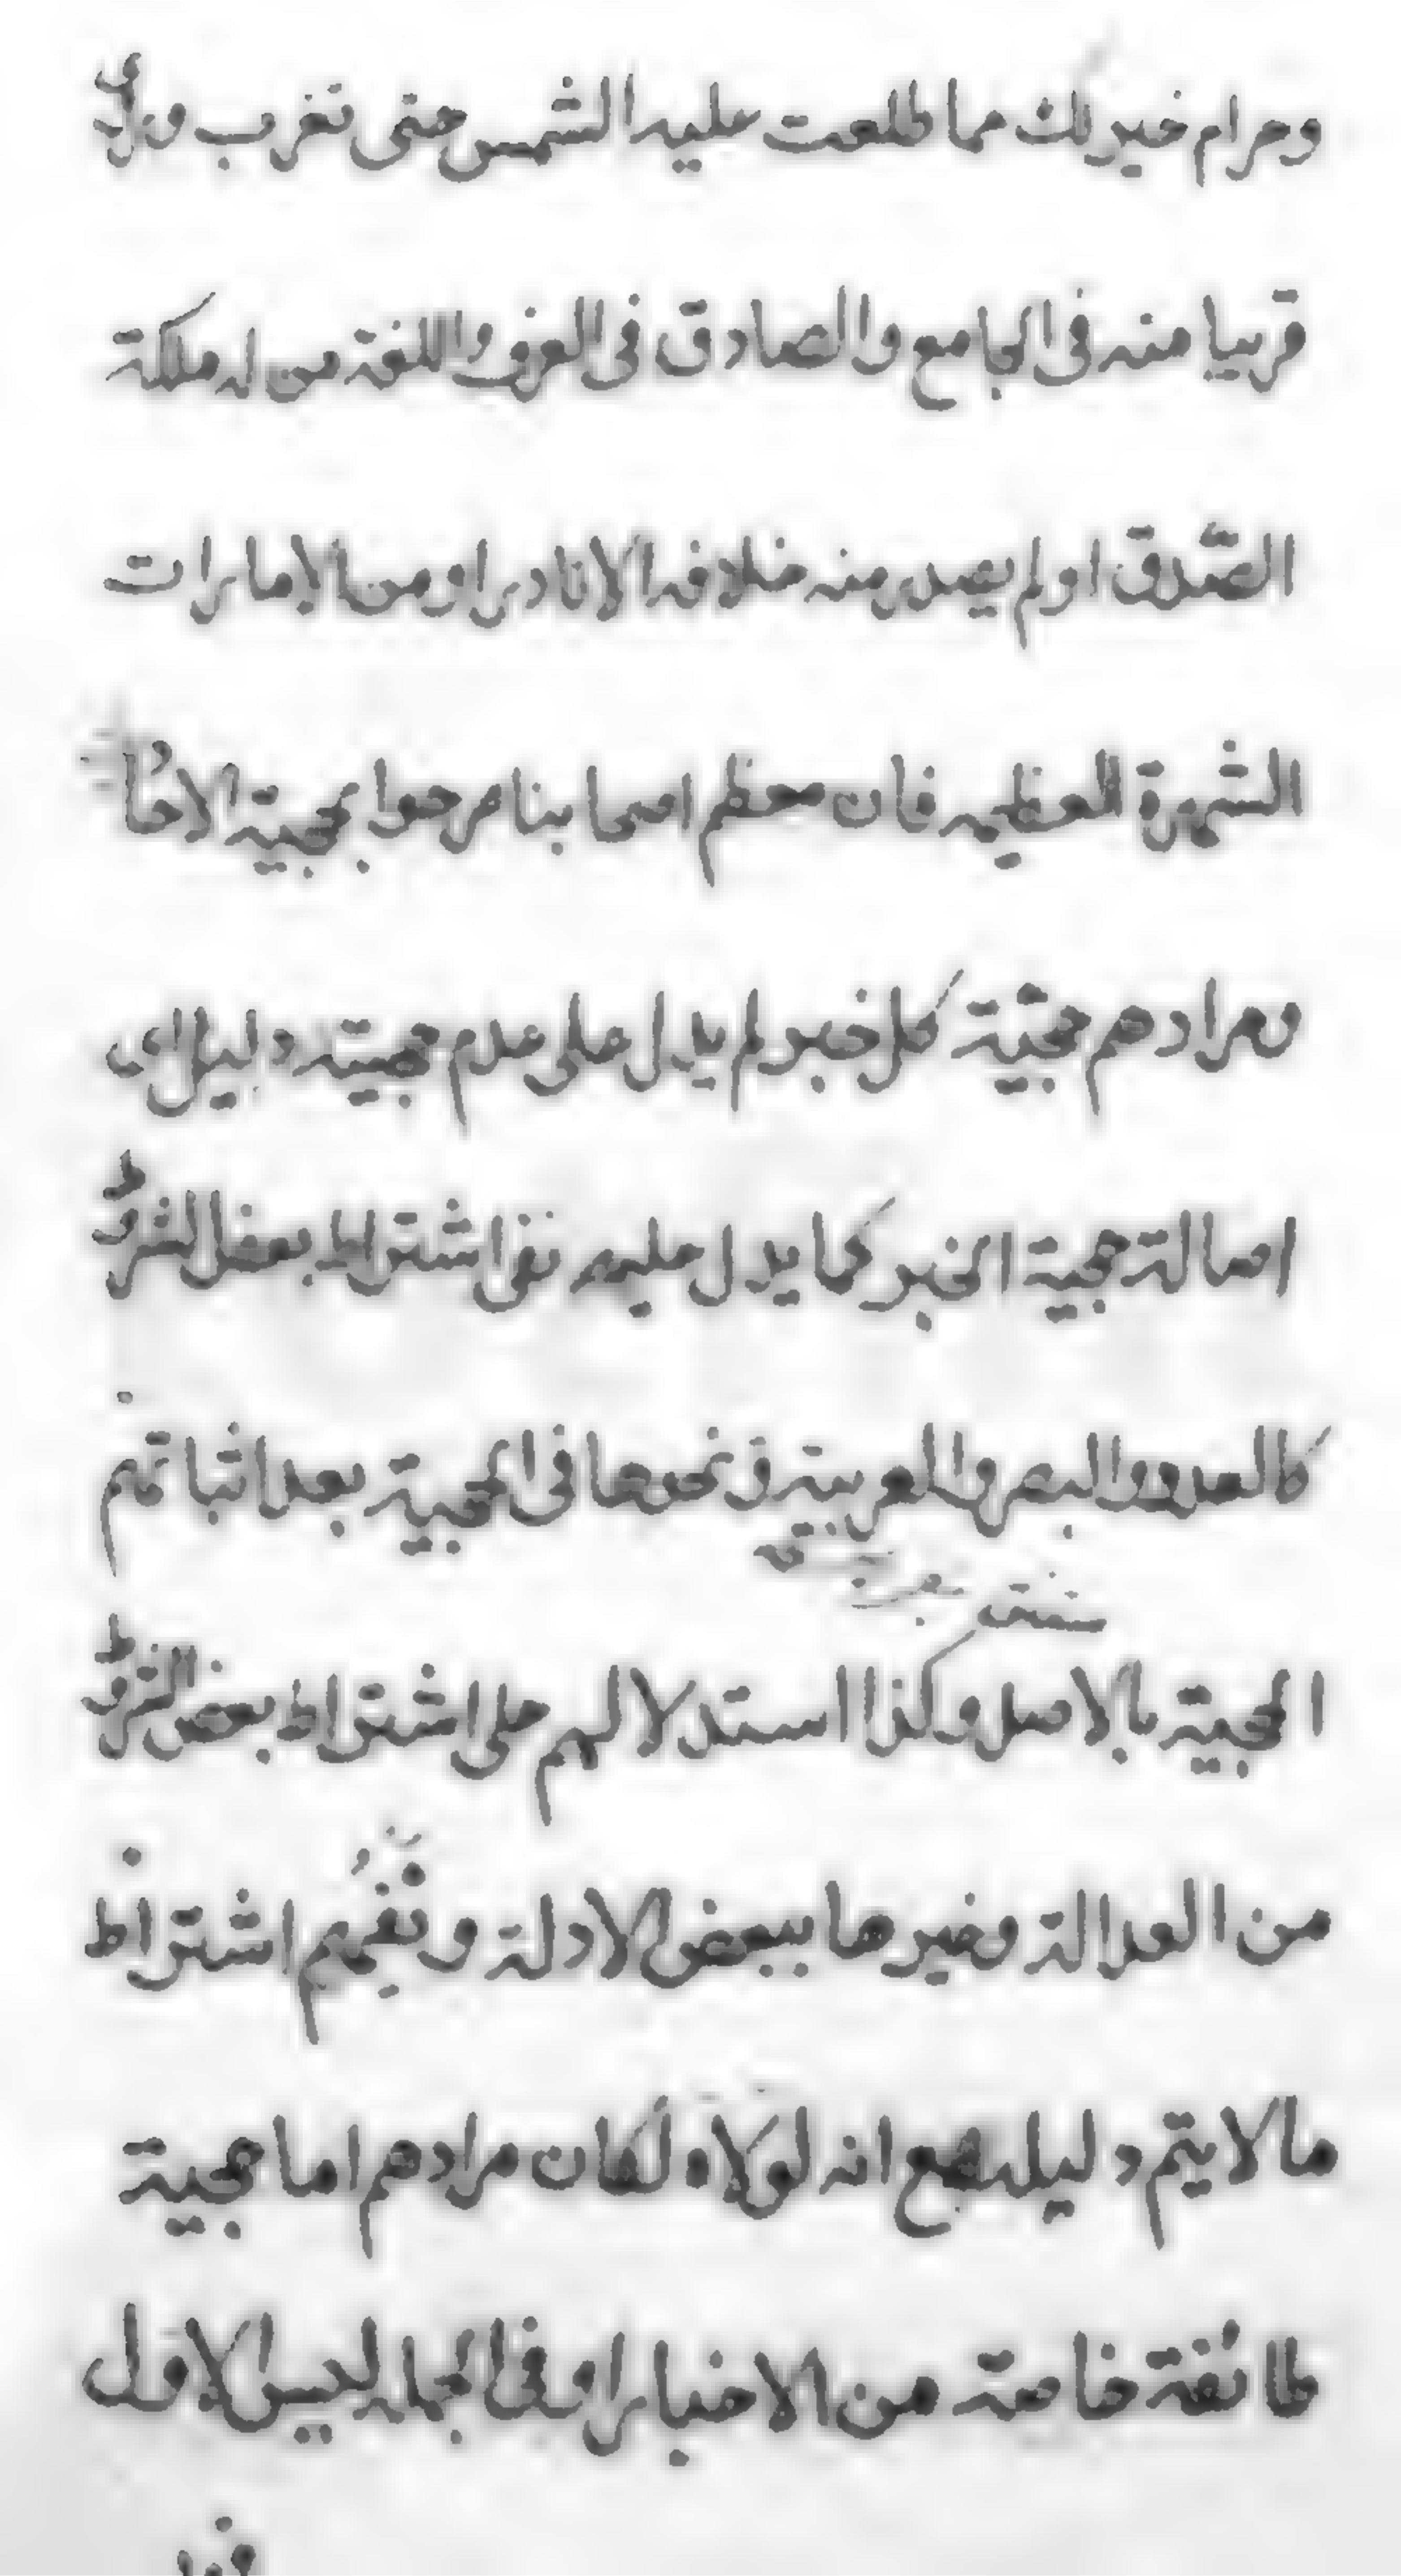 وحرام خير لك مما طلعت عليه الشمس حتى تغرب وروي
قريبا منه فى الجامع والصادق فى العرف واللغة من له ملكة
الصّدق او لم يصدر منه خلافه الا نادرا ومن الامارات
الشهرة العظيمه فان معظم اصحابنا صرحوا بحجية الاخبا
ومرادهم حجيّة كل خبر لم يدل على عدم حجيته دليل اى
اصالة حجية الخبر كما يدل عليه نفى اشتراط بعض الشروط
كالعدد والبصر والعربية و نحوها فى الحجية بعد اثباتهم
الحجية بالاصل وكذا استدلالهم على اشتراط بعض الشروط
من العدالة وغيرها ببعض الادلة ونفيهم اشتراط
ما لا يتم دليله مع انه لولاه لكان مرادهم اما حجية
طائفة خاصة من الاخبار او فى الجمله ليس الاول